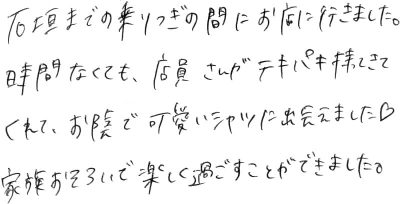 石垣までの乗りつぎの間にお店に行きました。
時間なくても、店員さんがテキパキ探してきて
くれて、お陰で可愛いシャツに出会えました♡
家族おそろいで楽しく過ごすことができました。